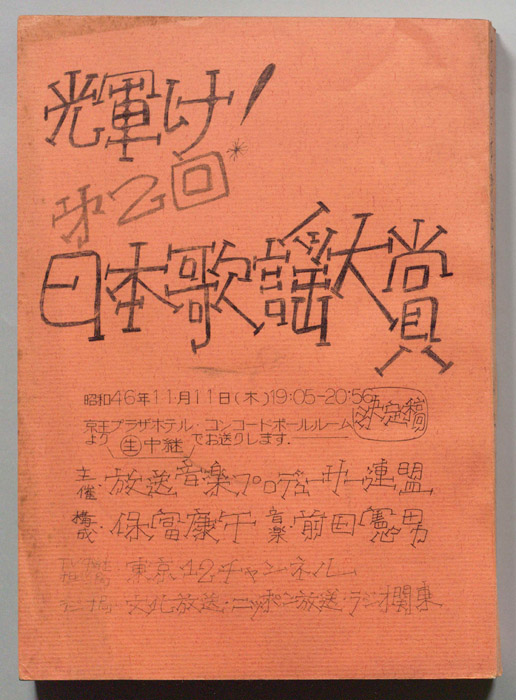 光輝け!
第2回*
日本歌謡大賞
昭和46年11月11日(木)19:05-20:56
決定稿
京王プラザホテル・コンコードボールルーム
より 生中継 でお送りします.
主催・放送音楽プロデューサー連盟
構成・保富康午 音楽・前田憲男
東京12チャンネル
文化放送・ニッポン放送・ラジオ関東